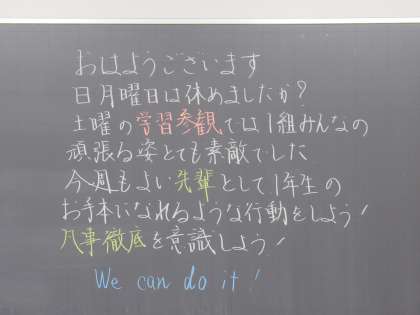 おはようございます
日月曜日は休めましたか?
土曜の学習参観では1組みんなの
頑張る姿とても素敵でした
今週もよい先輩として1年生の
お手本になれるような行動をしよう!
凡事徹底を意識しよう!
We can do it!